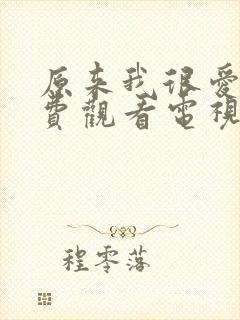 原来我很爱
費觀看電視
程零落